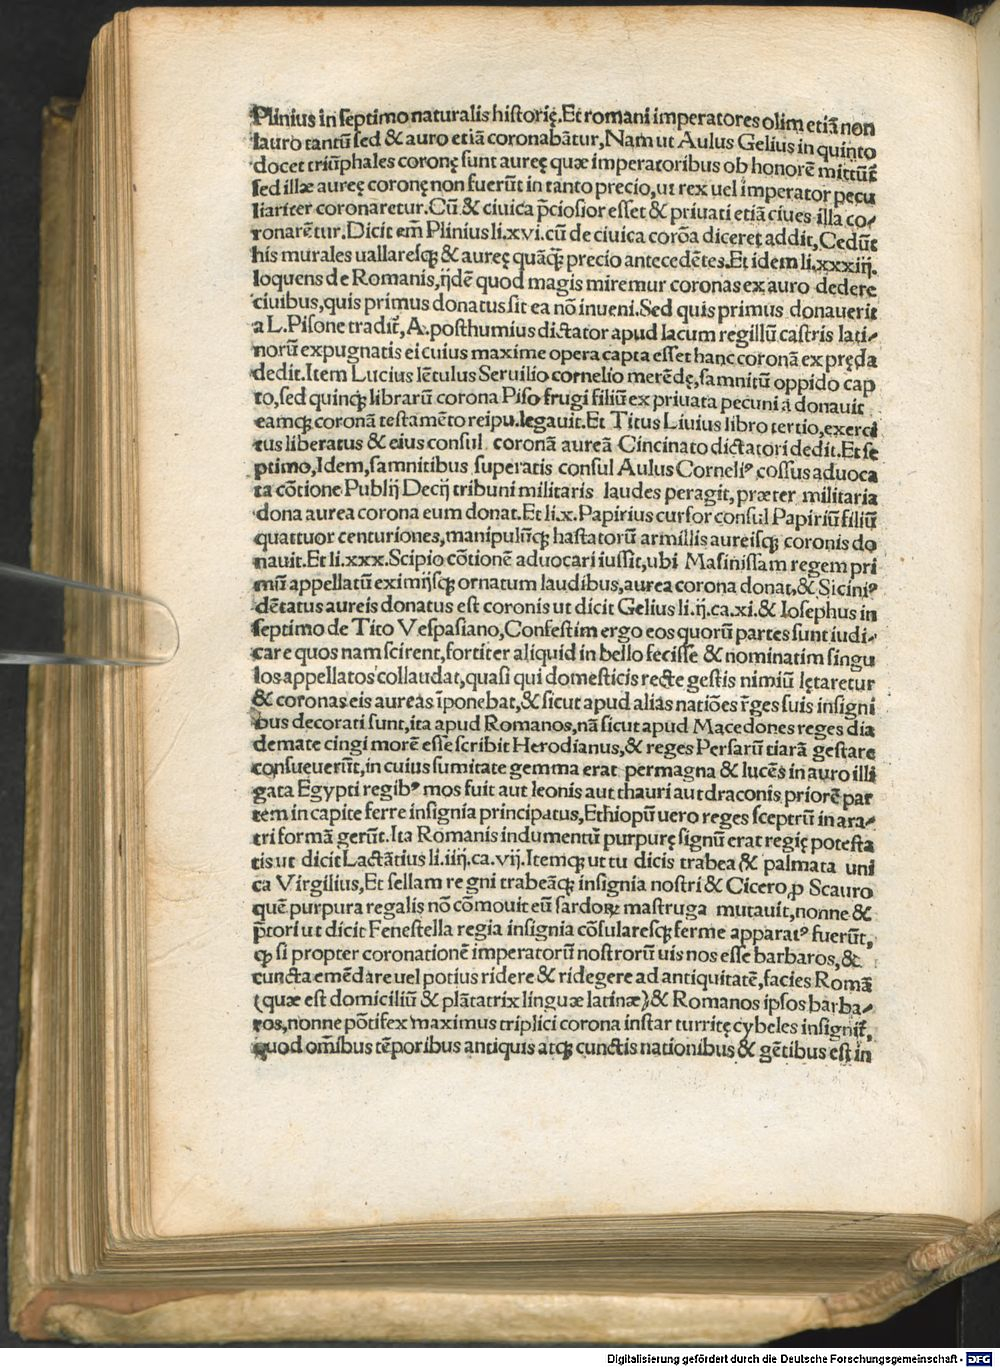 Plinius in septimo naturalis historię.Et romani imperatores olim etiã non
lauro tantũ sed & auro etiã coronabãtur,Nam ut Aulus Gelius in quinto
docet triũphales coronę sunt aureę quæ imperatoribus ob honorē mittũt̃
sed illæ aureę coronę non fuerũt in tanto precio,ut rex uel imperator pecu
liariter coronaretur.Cũ & ciuica p̃ciosior esset & priuati etiã ciues illa co⸗
ronarētur.Dicit em̃ Plinius li.xvi.cũ de ciuica corõa diceret addit,Cedũt
his murales uallaresqꝫ & aureę quãqꝫ precio antecedētes.Et idem li.xxxiij.
loquens de Romanis,ijdē quod magis miremur coronas ex auro dedere
ciuibus,quis primus donatus sit ea nõ inueni.Sed quis primus donauerit
a L.Pisone tradit̃,A.posthumius dictator apud lacum regillũ castris lati⸗
norũ expugnatis ei cuius maxime opera capta esset hanc coronã ex pręda
dedit.Item Lucius lētulus Seruilio cornelio merēdę,samnitũ oppido cap
to,sed quinqꝫ librarũ corona Piso frugi filiũ ex priuata pecunia donauit
eamqꝫ coronã testamēto reipu.legauit.Et Titus Liuius libro tertio,exerci
tus liberatus & eius consul coronã aureã Cincinato dictatori dedit.Et se
ptimo,Idem,samnitibus superatis consul Aulus Corneliꝰ cossus aduoca
ta cõtione Publij Decij tribuni militaris laudes peragit,præter militaria
dona aurea corona eum donat.Et li.x.Papirius cursor consul Papiriũ filiũ
quattuor centuriones,manipulũqꝫ hastatorũ armillis aureisqꝫ coronis do
nauit.Et li.xxx.Scipio cõtionē aduocari iussit,ubi Masinissam regem pri
mũ appellatũ eximijsqꝫ ornatum laudibus,aurea corona donat,& Siciniꝰ
dētatus aureis donatus est coronis ut dicit Gelius li.ij.ca.xi.& Iosephus in
septimo de Tito Vespasiano,Confestim ergo eos quorũ partes sunt iudi⸗
care quos nam scirent,fortiter aliquid in bello fecisse & nominatim singu
los appellatos collaudat,quasi qui domesticis recte gestis nimiũ lętaretur
& coronas eis aureas ĩponebat,& sicut apud alias natiões r̃ges suis insigni
bus decorati sunt,ita apud Romanos,nã sicut apud Macedones reges dia
demate cingi morē esse scribit Herodianus,& reges Persarũ tiarã gestare
consueuerũt,in cuius sumitate gemma erat permagna & lucēs in auro illi
gata Egypti regibꝰ mos fuit aut leonis aut thauri aut draconis priorē par
tem in capite ferre insignia principatus,Ethiopũ uero reges sceptrũ in ara⸗
tri formã gerũt.Ita Romanis indumentũ purpurę signũ erat regię potesta
tis ut dicit Lactãtius li.iiij.ca.vij.Itemqꝫ ut tu dicis trabea & palmata uni
ca Virgilius,Et sellam regni trabeãqꝫ insignia nostri & Cicero,ꝓ Scauro
quē purpura regalis nõ cõmouit eũ sardoꝝ mastruga mutauit,nonne &
p̃tori ut dicit Fenestella regia insignia cõsularesqꝫ ferme apparatꝰ fuerũt,
ꝙ si propter coronationē imperatorũ nostrorũ uis nos esse barbaros,&
cuncta emēdare uel potius ridere & ridegere ad antiquitatē,facies Romã
(quæ est domiciliũ & plãtatrix linguæ latinæ) & Romanos ipsos barba⸗
ros,nonne põtifex maximus triplici corona instar turritę cybeles insignit̃,
quod om̃ibus tēporibus antiquis atqꝫ cunctis nationibus & gētibus est in
Digitalisierung gefördert durch die Deutsche Forschungsgemeinschaft - DFG